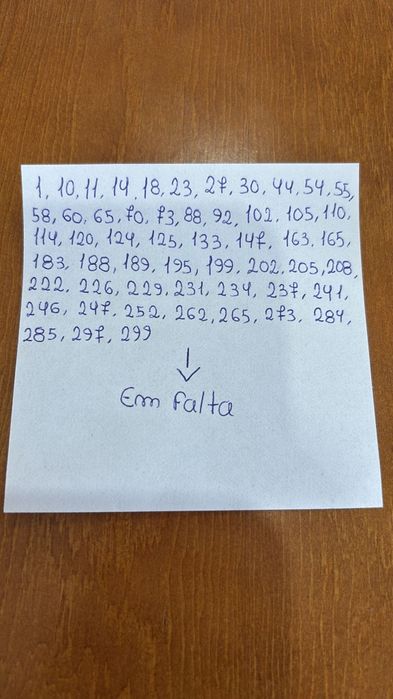 1, 10, 11, 14, 18, 23, 27, 30, 44, 54, 55,
58, 60, 65, 70, 73, 88, 92, 102, 105, 110,
114, 120, 124, 125, 133, 147, 163, 165,
183, 188, 189, 195, 199, 202, 205, 208,
222, 226, 229, 231, 234, 237, 241,
246, 247, 252, 262, 265, 273, 284,
285, 297, 299
Em falta